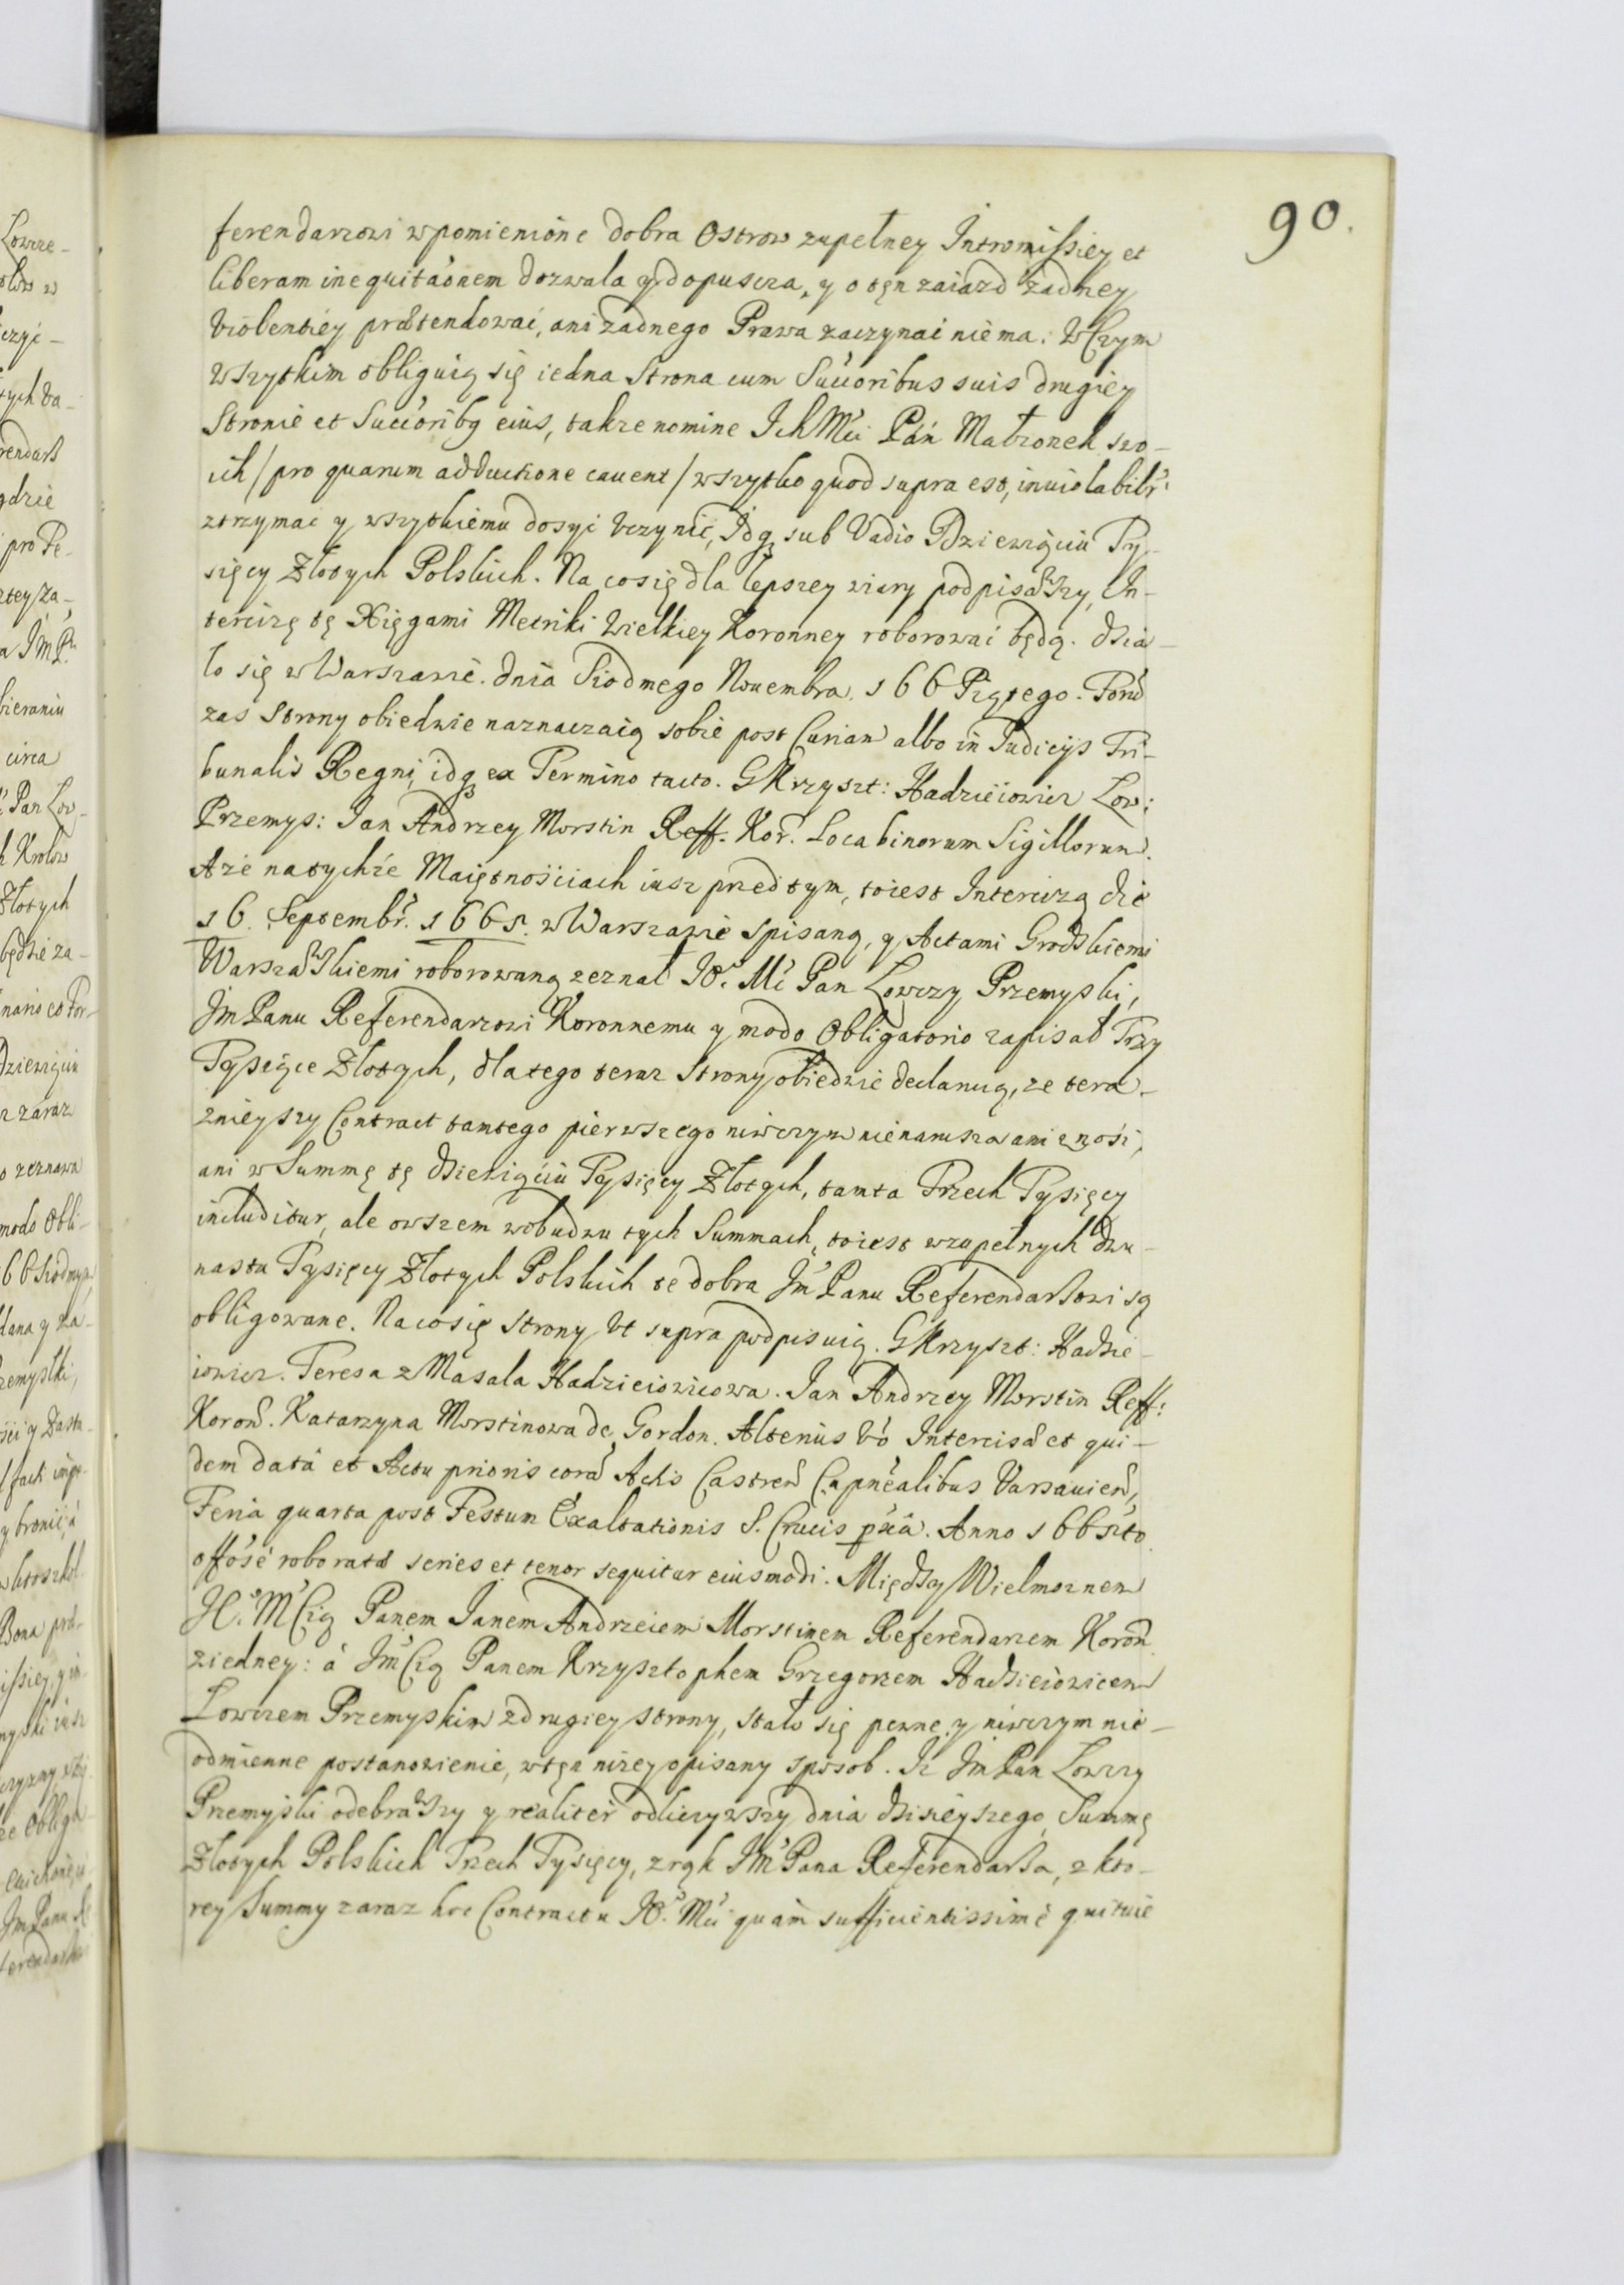 90.
ferendarzowi wpomienione dobra Ostrow zupełney Intromissiey et
liberam inequitaõnem dozwala y dopuscza, y o tęn zaiazd żadney
Violentiey prætendować, ani żadnego Prawa zaczynać nie ma. W Czym
Wszytkim obliguią się iedna Strona cum Succoribus suis drugiey
Stronie et Succoribg eius, także nomine Ich Mći Pań Małzonek swo-
ich / pro quarum adductione cavent / wszytko quod supra est, inuiolabilr̃
ztrzymac y wszytkiemu dosyć Vczynić, Idq sub Vadio Dziewiąciu Ty-
sięcy Złotych Polskich. Na co się dla lepszey wiary podpisawszy, In-
tercizę tę Xięgami Metriki Wielkiey Koronney roborować będą. Dzia-
ło się w Warszawie. dnia Siodmego Nouembra. 166 Piątego. Forũ
zas Strony obiedwie naznaczaią sobie post Curiam albo in Iudicijs Tri-
bunalis Regni, idq ex Termino tacto. G Krzyszt: Hadzieiowicz Low:
Przemys: Jan Andrzey Morstin Reff. Kor. Loca binorum Sigillorum.
A że na tychże Maiętnościach iusz przed tym, toiest Intercizą die
16. Septembr. 1665. w Warszawie spisaną, y Actami Grodskiemi
Warszawskiemi roborowaną zeznał Jº. Mć Pan Łowczy Przemyski,
Jm Panu Referendarzowi Koronnemu y modo Obligatorio zapisał Trzy
Tysiące Złotych, dlatego teraz Strony obiedwie declaruią, że tera-
znieyszy Contract tamtego pierwszego niwczym nienarusza ani znosi,
ani w Summę tę Dziewiąciu Tysięcy Złotych, tamta Trzech Tysięcy
includitur, ale owszem wobudwu tych Summach, toiest wzupełnych dwu-
nastu Tysięcy Złotych Polskich te dobra Jm Panu Referendarzowi są
obligowane. Na co się Strony Vt supra podpisuią. G Krzyszt: Hadzie-
iowicz. Teresa z Masala Hadzieiowicowa. Jan Andrzey Morstin Reff:
Koroñ. Katarzyna Morstinowa de Gordon. Alterius Vo Intercisæ et qui-
dem data et Actu prioris corã Actis Castreñ Capnealibus Varsavieñ,
Feria quarta post Festum Exaltationis S. Crucis pxa. Anno 1665to
offose roboratæ series et tenor sequitur eiusmodi. Między Wielmoznem
Jº. MCią Panem Janem Andrzeiem Morstinem Referendarzem Koroñ
ziedney: á JmCią Panem Krzysztophem Grzegorzem Hadzieiowicem
Łowczem Przemyskim z drugiey strony, stało się pewne y niwczym nie-
odmienne postanowienie, w tęn niżey opisany sposob. Iż Jm Pan Łowczy
Przemyski odebrawszy y realiter odliczywszy dnia dzisieyszego Summę
Złotych Polskich Trzech Tysięcy, z rąk Jm Pana Referendarza, z kto-
rey Summy zaraz hoc Contractu Jº. Mći quam sufficientissimè quituie